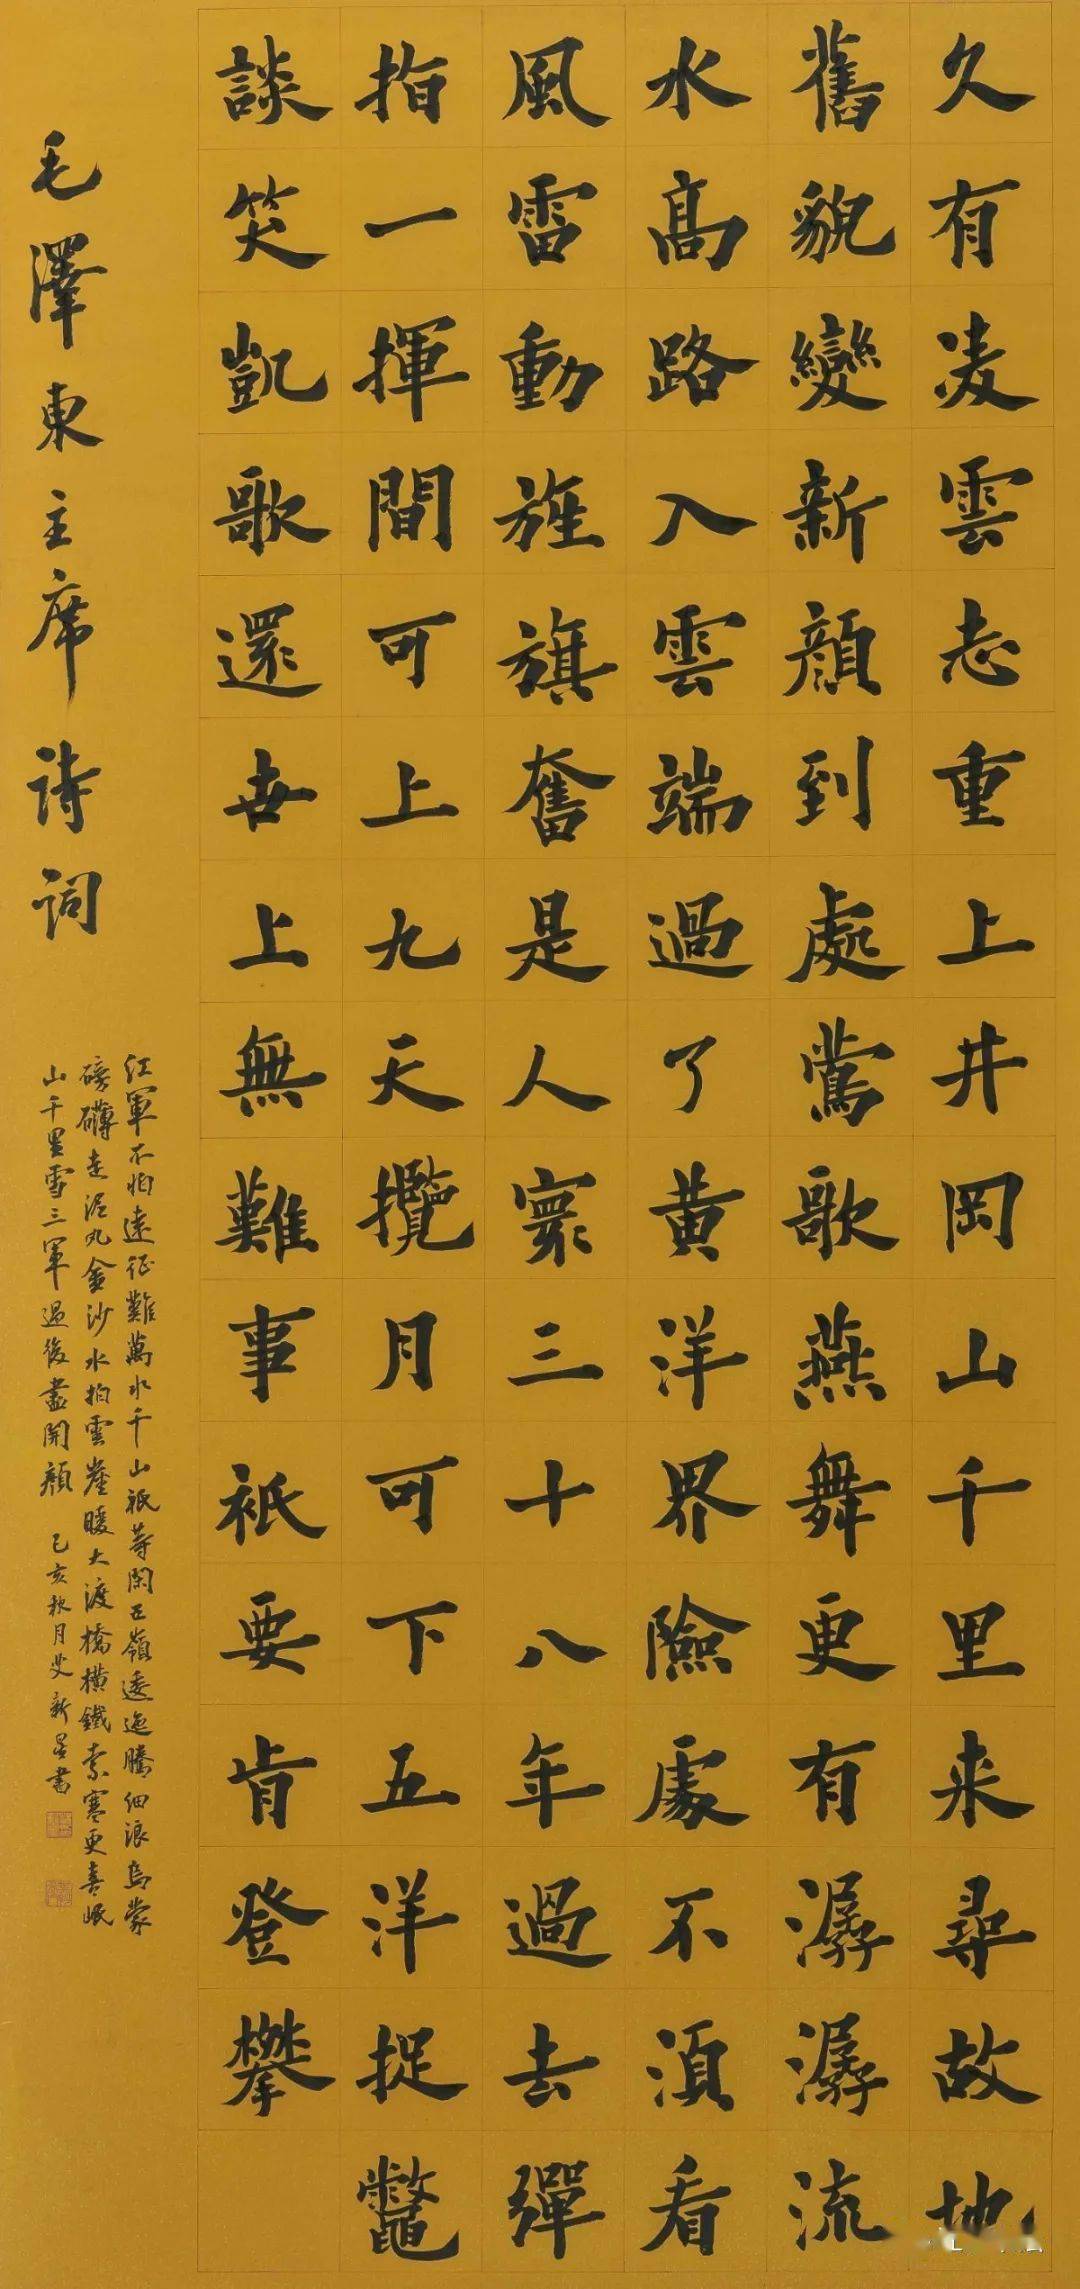 久有凌雲志重上井岡山千里来尋故地
舊貌變新顔到處鶯歌燕舞更有潺潺流
水高路入雲端過了黄洋界險處不須看
風雷動旌旗奮是人寰三十八年過去彈
指一揮間可上九天攬月可下五洋捉鼈
談笑凱歌還世上無難事衹要肯登攀
毛澤東主席詩詞
紅軍不怕遠征難萬水千山衹等閑五嶺逶迤騰細浪烏蒙
磅礴走泥丸金沙水拍雲崖暖大渡橋横鐵索寒更喜岷
山千里雪三軍過後盡開顔 己亥秋月艾新書